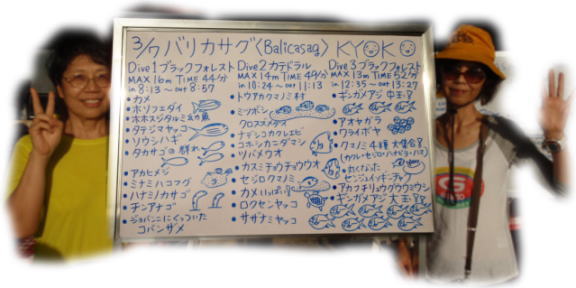 3/7 バリカサグ〈Balicasag〉 KYOKO
Dive 1 ブラックフォレスト
MAX 16m TIME 44分
in 8:13 〜 out 8:57
・カメ
・ホソフエダイ
・タテジマヤッコ
・ソウシハギ
・タカサゴの群れ
・アカヒメジ
・ミナミハコフグ
・ハナミノカサゴ
・チンアナゴ
・ジョバンニにくっついた
コバンザメ
Dive 2 カテドラル
MAX 14m TIME 49分
in 10:24 〜 out 11:13
・トウアカクマノミ村
・ミツボシ
クロスズメダイ
・ナデシコカクレエビ
・コホシカニダマシ
・ツバメウオ
・カスミチョウチョウウオ
・セジロクマノミ
・カメ
・ロクセンヤッコ
・サザナミヤッコ
Dive 3 ブラックフォレスト
MAX 13m TIME 52分
in 12:35 〜 out 13:27
・ギンガメアジ
・アオヤガラ
・ワライボヤ
・クマノミ4種 大集合!!
・丸くなった
センジュイソギンチャク
・アカフチリュウグウウミウシ
・ギンガメアジ